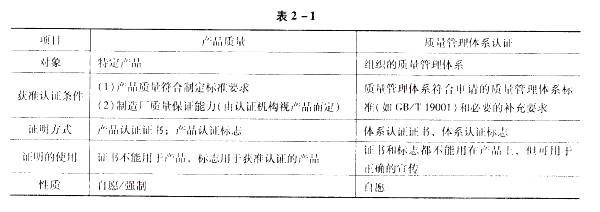 表2-1
项目 产品质量 质量管理体系认证
对象 特定产品 组织的质量管理体系
获准认证条件 (1)产品质量符合制定标准要求 (2)制造厂质量保证能力(由认证机构视产品而定) 质量管理体系符合申请的质量管理体系标准(如GB/T 19001)和必要的补充要求
证明方式 产品认证证书；产品认证标志 体系认证证书、体系认证标志
证明的使用 证书不能用于产品、标志用于获准认证的产品 证书和标志都不能用在产品上、但可用于正确的宣传
性质 自愿/强制 自愿